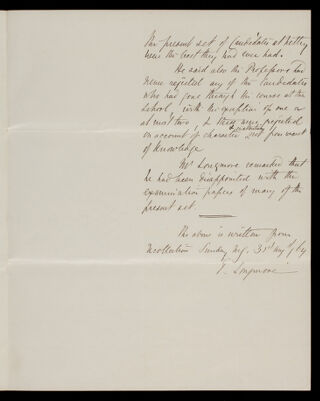 the present set of Candidates at Netley
were the best they had ever had.
He said also the Professors had
never rejected any of the Candidates
who had gone through the course at the
school, with the exception of one or
at most two, & they were rejected
on account of character not from want
of knowledge
Mr Longmore remarked that
he had been disappointed with the
examination papers of many of the
present set.
The above is written from
recollection Sunday 31st
T. Longmore